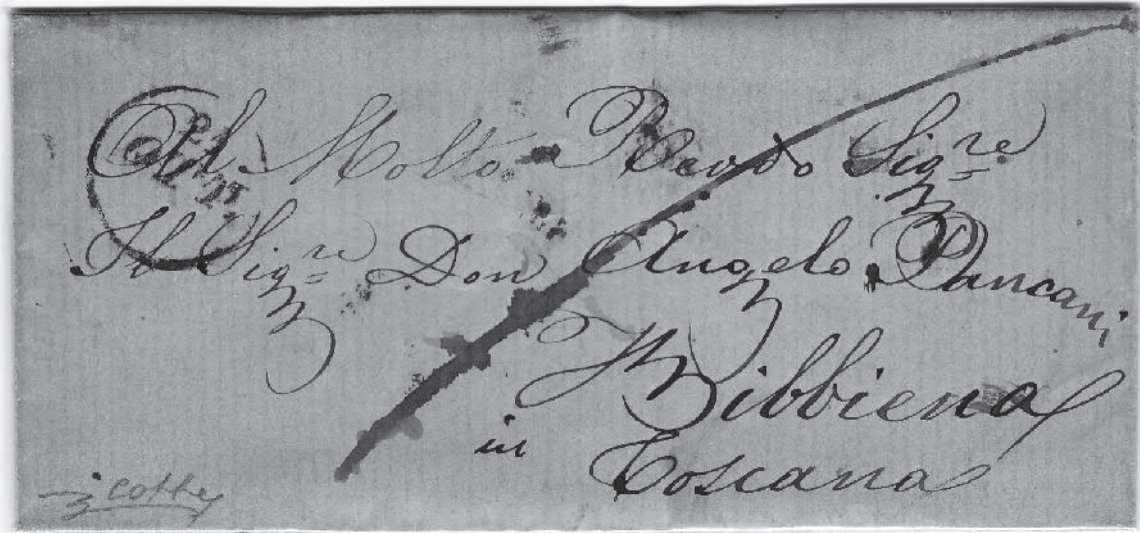 Al Molto Revdo Sigre
Il Sigre Don Angelo Pancani
Bibbiena
in
Toscana